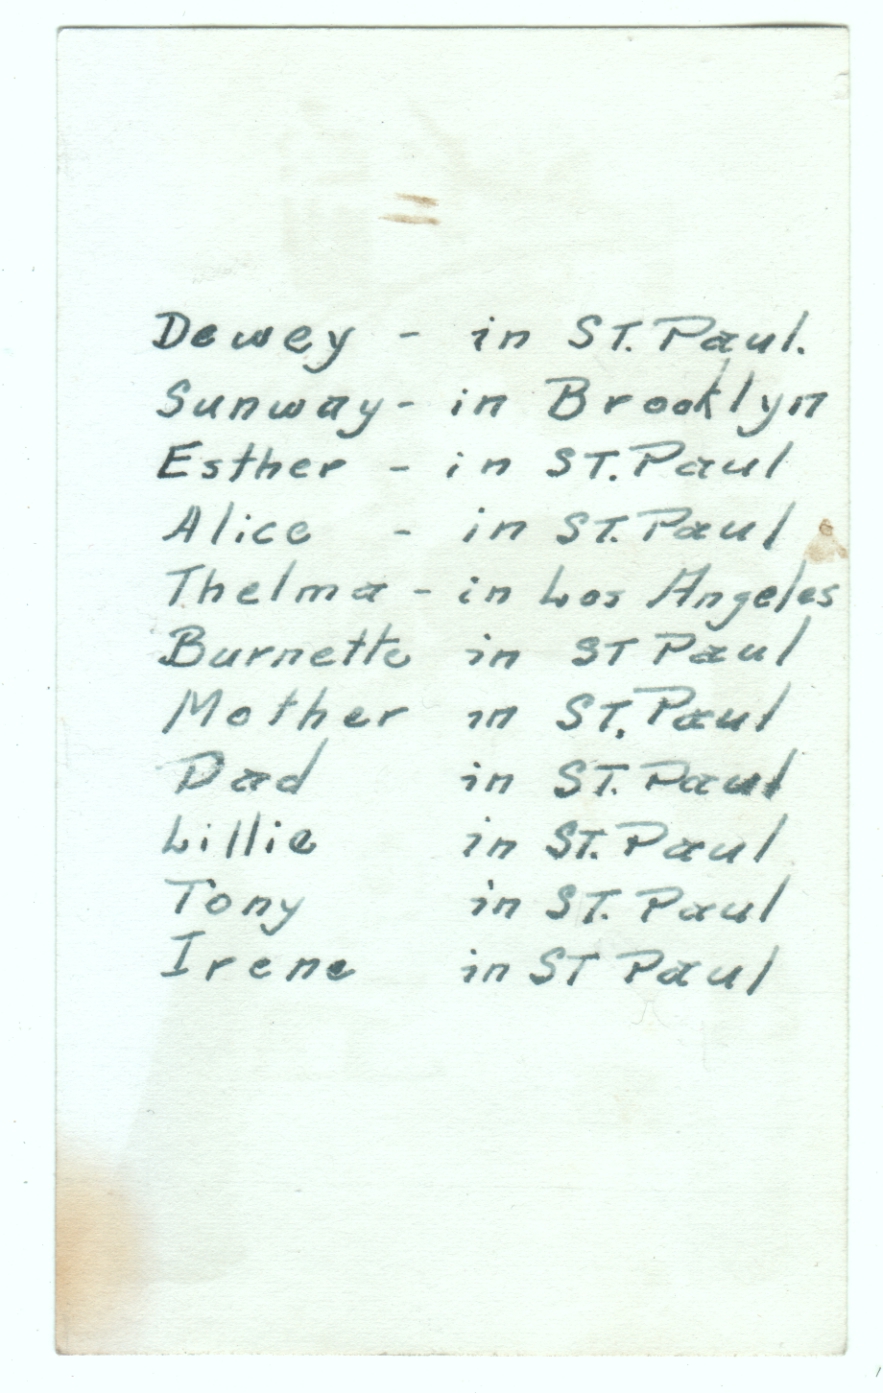 Dewey - in ST. Paul.
Sunway - in Brooklyn
Esther - in ST. Paul
Alice - in ST. Paul
Thelma - in Los Angeles
Burnette in ST Paul
Mother in ST. Paul
Dad in ST. Paul
Lillie in ST. Paul
Tony in ST. Paul
Irene in ST Paul